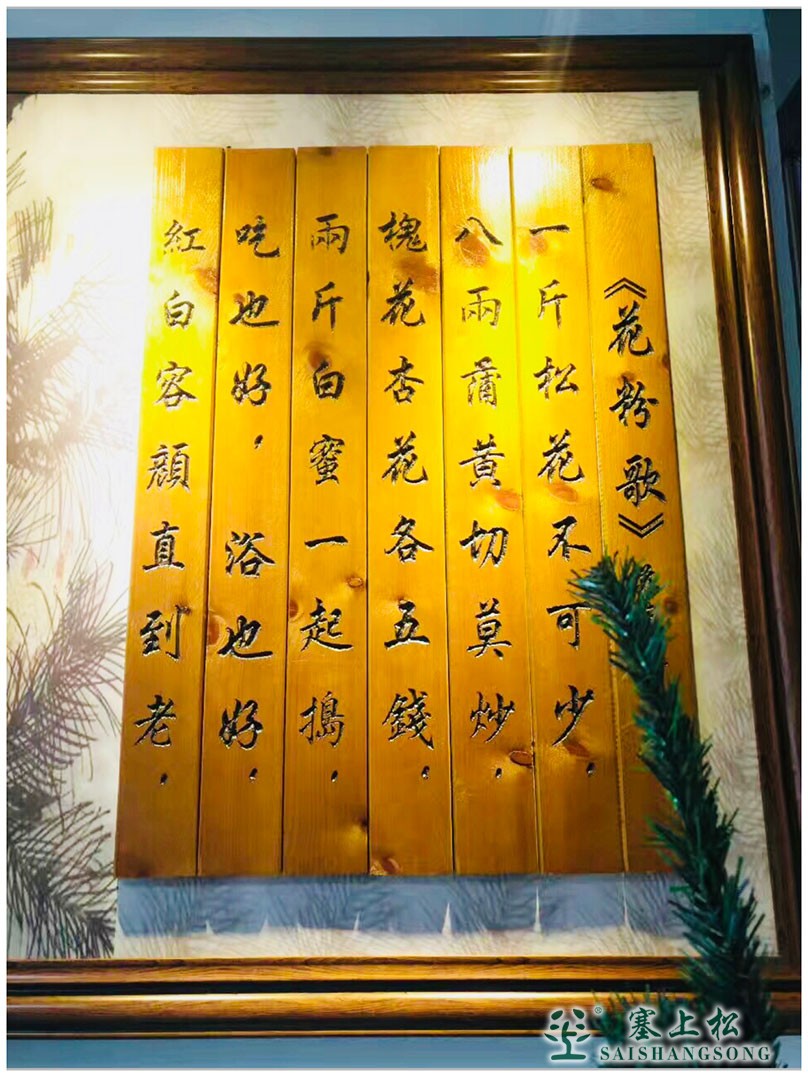 《花粉歌》
一斤松花不可少，
八兩蒲黃切莫炒，
槐花杏花各五錢，
兩斤白蜜一起搗，
吃也好，浴也好，
紅白容顏直到老，
®
塞上松
SAISHANGSONG